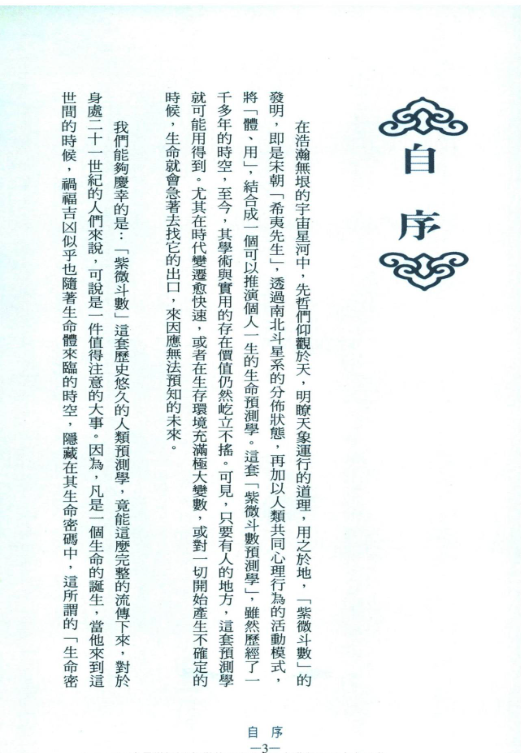 自序
在浩瀚無垠的宇宙星河中，先哲們仰觀於天，明瞭天象運行的道理，用之於地，「紫微斗數」的
發明，即是宋朝「希夷先生」，透過南北斗星系的分佈狀態，再加以人類共同心理行為的活動模式，
將「體、用」，結合成一個可以推演個人一生的生命預測學。這套「紫微斗數預測學」，雖然歷經了一
千多年的時空，至今，其學術與實用的存在價值仍然屹立不搖。可見，只要有人的地方，這套預測學
就可能用得到。尤其在時代變遷愈快速，或者在生存環境充滿極大變數，或對一切開始產生不確定的
時候，生命就會急著去找它的出口，來因應無法預知的未來。
我們能夠慶幸的是：「紫微斗數」這套歷史悠久的人類預測學，竟能這麼完整的流傳下來，對於
身處二十一世紀的人們來說，可說是一件值得注意的大事。因為，凡是一個生命的誕生，當他來到這
世間的時候，禍福吉凶似乎也隨著生命體來臨的時空，隱藏在其生命密碼中，這所謂的「生命密
自序
—3—